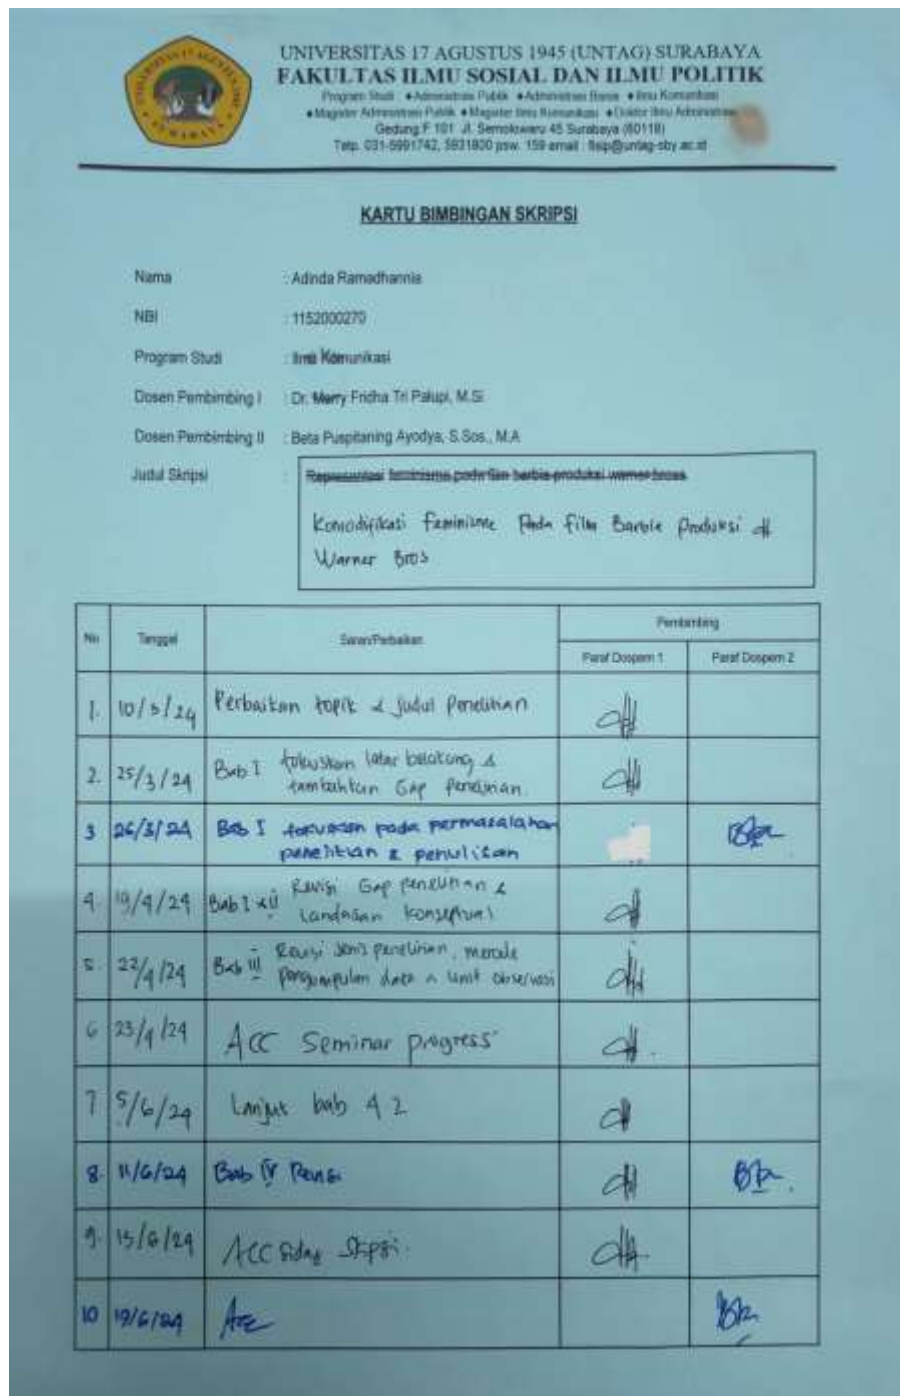 UNIVERSITAS 17 AGUSTUS 1945 (UNTAG) SURABAYA
FAKULTAS ILMU SOSIAL DAN ILMU POLITIK
Program Studi ♦Administrasi Publik ♦Administrasi Bisnis ♦Ilmu Komunikasi
♦Magister Administrasi Publik ♦Magister Ilmu Komunikasi ♦Doktor Ilmu Administrasi
Gedung F 101 Jl. Semolowaru 45 Surabaya (60118)
Telp. 031-5991742, 5931800 psw. 159 email : fisip@untag-sby.ac.id
KARTU BIMBINGAN SKRIPSI
Nama : Adinda Ramadhannia
NBI : 1152000270
Program Studi : Ilmu Komunikasi
Dosen Pembimbing I : Dr. Merry Fridha Tri Palupi, M.Si
Dosen Pembimbing II : Beta Puspitaning Ayodya, S.Sos., M.A
Judul Skripsi : Representasi feminisme pada film barbie produksi warner bross
Komodifikasi Feminisme Pada Film Barbie Produksi
Warner Bros
No Tanggal Saran/Perbaikan Pembimbing
Paraf Dospem 1 Paraf Dospem 2
1. 10/3/24 Perbaikan topik & judul Penelitian
2. 25/3/24 Bab I fokuskan latar belakang &
tambahkan Gap penelitian.
3 26/3/24 Bab I fokuskan pada permasalahan
penelitian & penulisan
4. 19/4/24 Bab I & II Revisi Gap penelitian &
Landasan konseptual
5. 22/4/24 Bab III Revisi jenis penelitian, metode
pengumpulan data & unit observasi
6 23/4/24 ACC Seminar progress
7 5/6/24 Lanjut bab 4 2
8. 11/6/24 Bab IV Revisi
9. 15/6/24 ACC Sidang Skripsi.
10 19/6/24 Acc